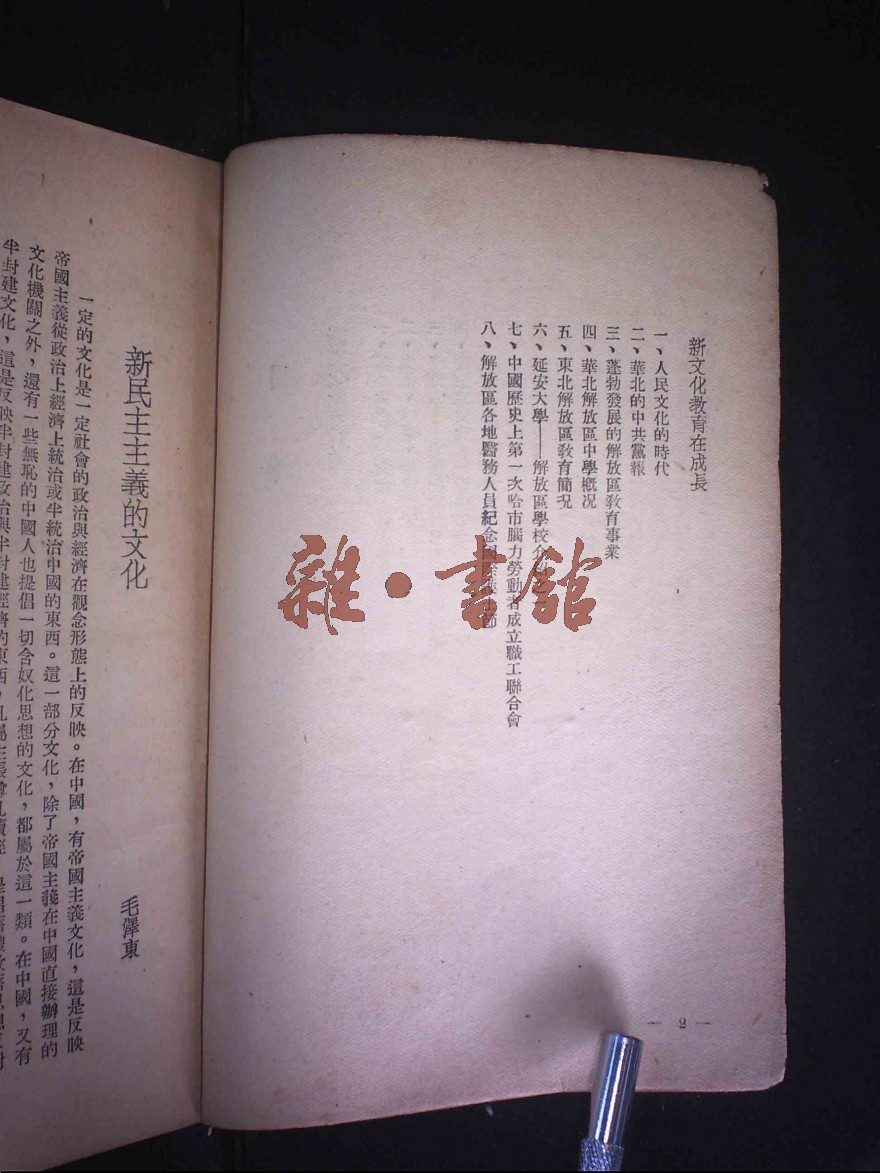 新文化教育在成長
一、人民文化的時代
二、華北的中共黨報
三、蓬勃發展的解放區教育事業
四、華北解放區中學概況
五、東北解放區敎育簡况
六、延安大學——解放區學校介紹之
七、中國歷史上第一次哈市腦力勞動者成立職工聯合會
八、解放區各地醫務人員紀念節
— 2 —
雜·書館
新民主主義的文化
毛澤東
一定的文化是一定社會的政治與經濟在觀念形態上的反映。在中國，有帝國主義文化，這是反映
帝國主義從政治上經濟上統治或半統治中國的東西。這一部分文化，除了帝國主義在中國直接辦理的
文化機關之外，還有一些無恥的中國人也提倡一切含奴化思想的文化，都屬於這一類。在中國，又有
半封建文化，這是反映半封建政治與半封建經濟的東西，